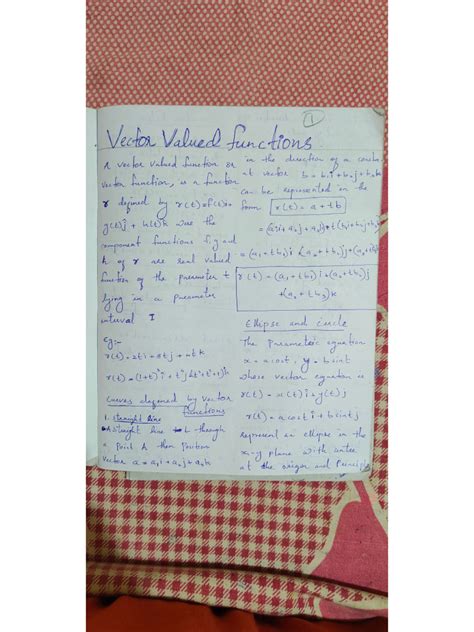 1
Vector Valued functions
A vector valued function or
vector function, is a function
r defined by r(t) = f(t)i +
g(t)j + h(t)k where the
component functions f, g and
h of r are real valued
function of the parameter t
lying in a parameter
interval I
eg:-
r(t) = 2ti + 8tj + nt k
r(t) = (1+t)³i + t²j
Curves defined by vector
functions
1. Straight line
A straight line L through
a point A then position
vector a = a₁i + a₂j + a₃k
in the direction of a
at vector b = b₁i + b₂j + b₃k
can be represented in the
form r(t) = a + tb
= (a₁i + a₂j + a₃) + t(b₁i + b₂j + b₃k)
= (a₁ + tb₁)i + (a₂ + tb₂)j + (a₃ + tb₃)k
r(t) = (a₁ + tb₁)i + (a₂ + tb₂)j
+(a₃ + tb₃)k
Ellipse and circle
The parametric equation
x = a cost, y = b sint
whose vector equation is
r(t) = x(t)i + y(t)j
r(t) = a cost i + b sint j
represent an ellipse in the
x-y plane with
at the origin and Principle